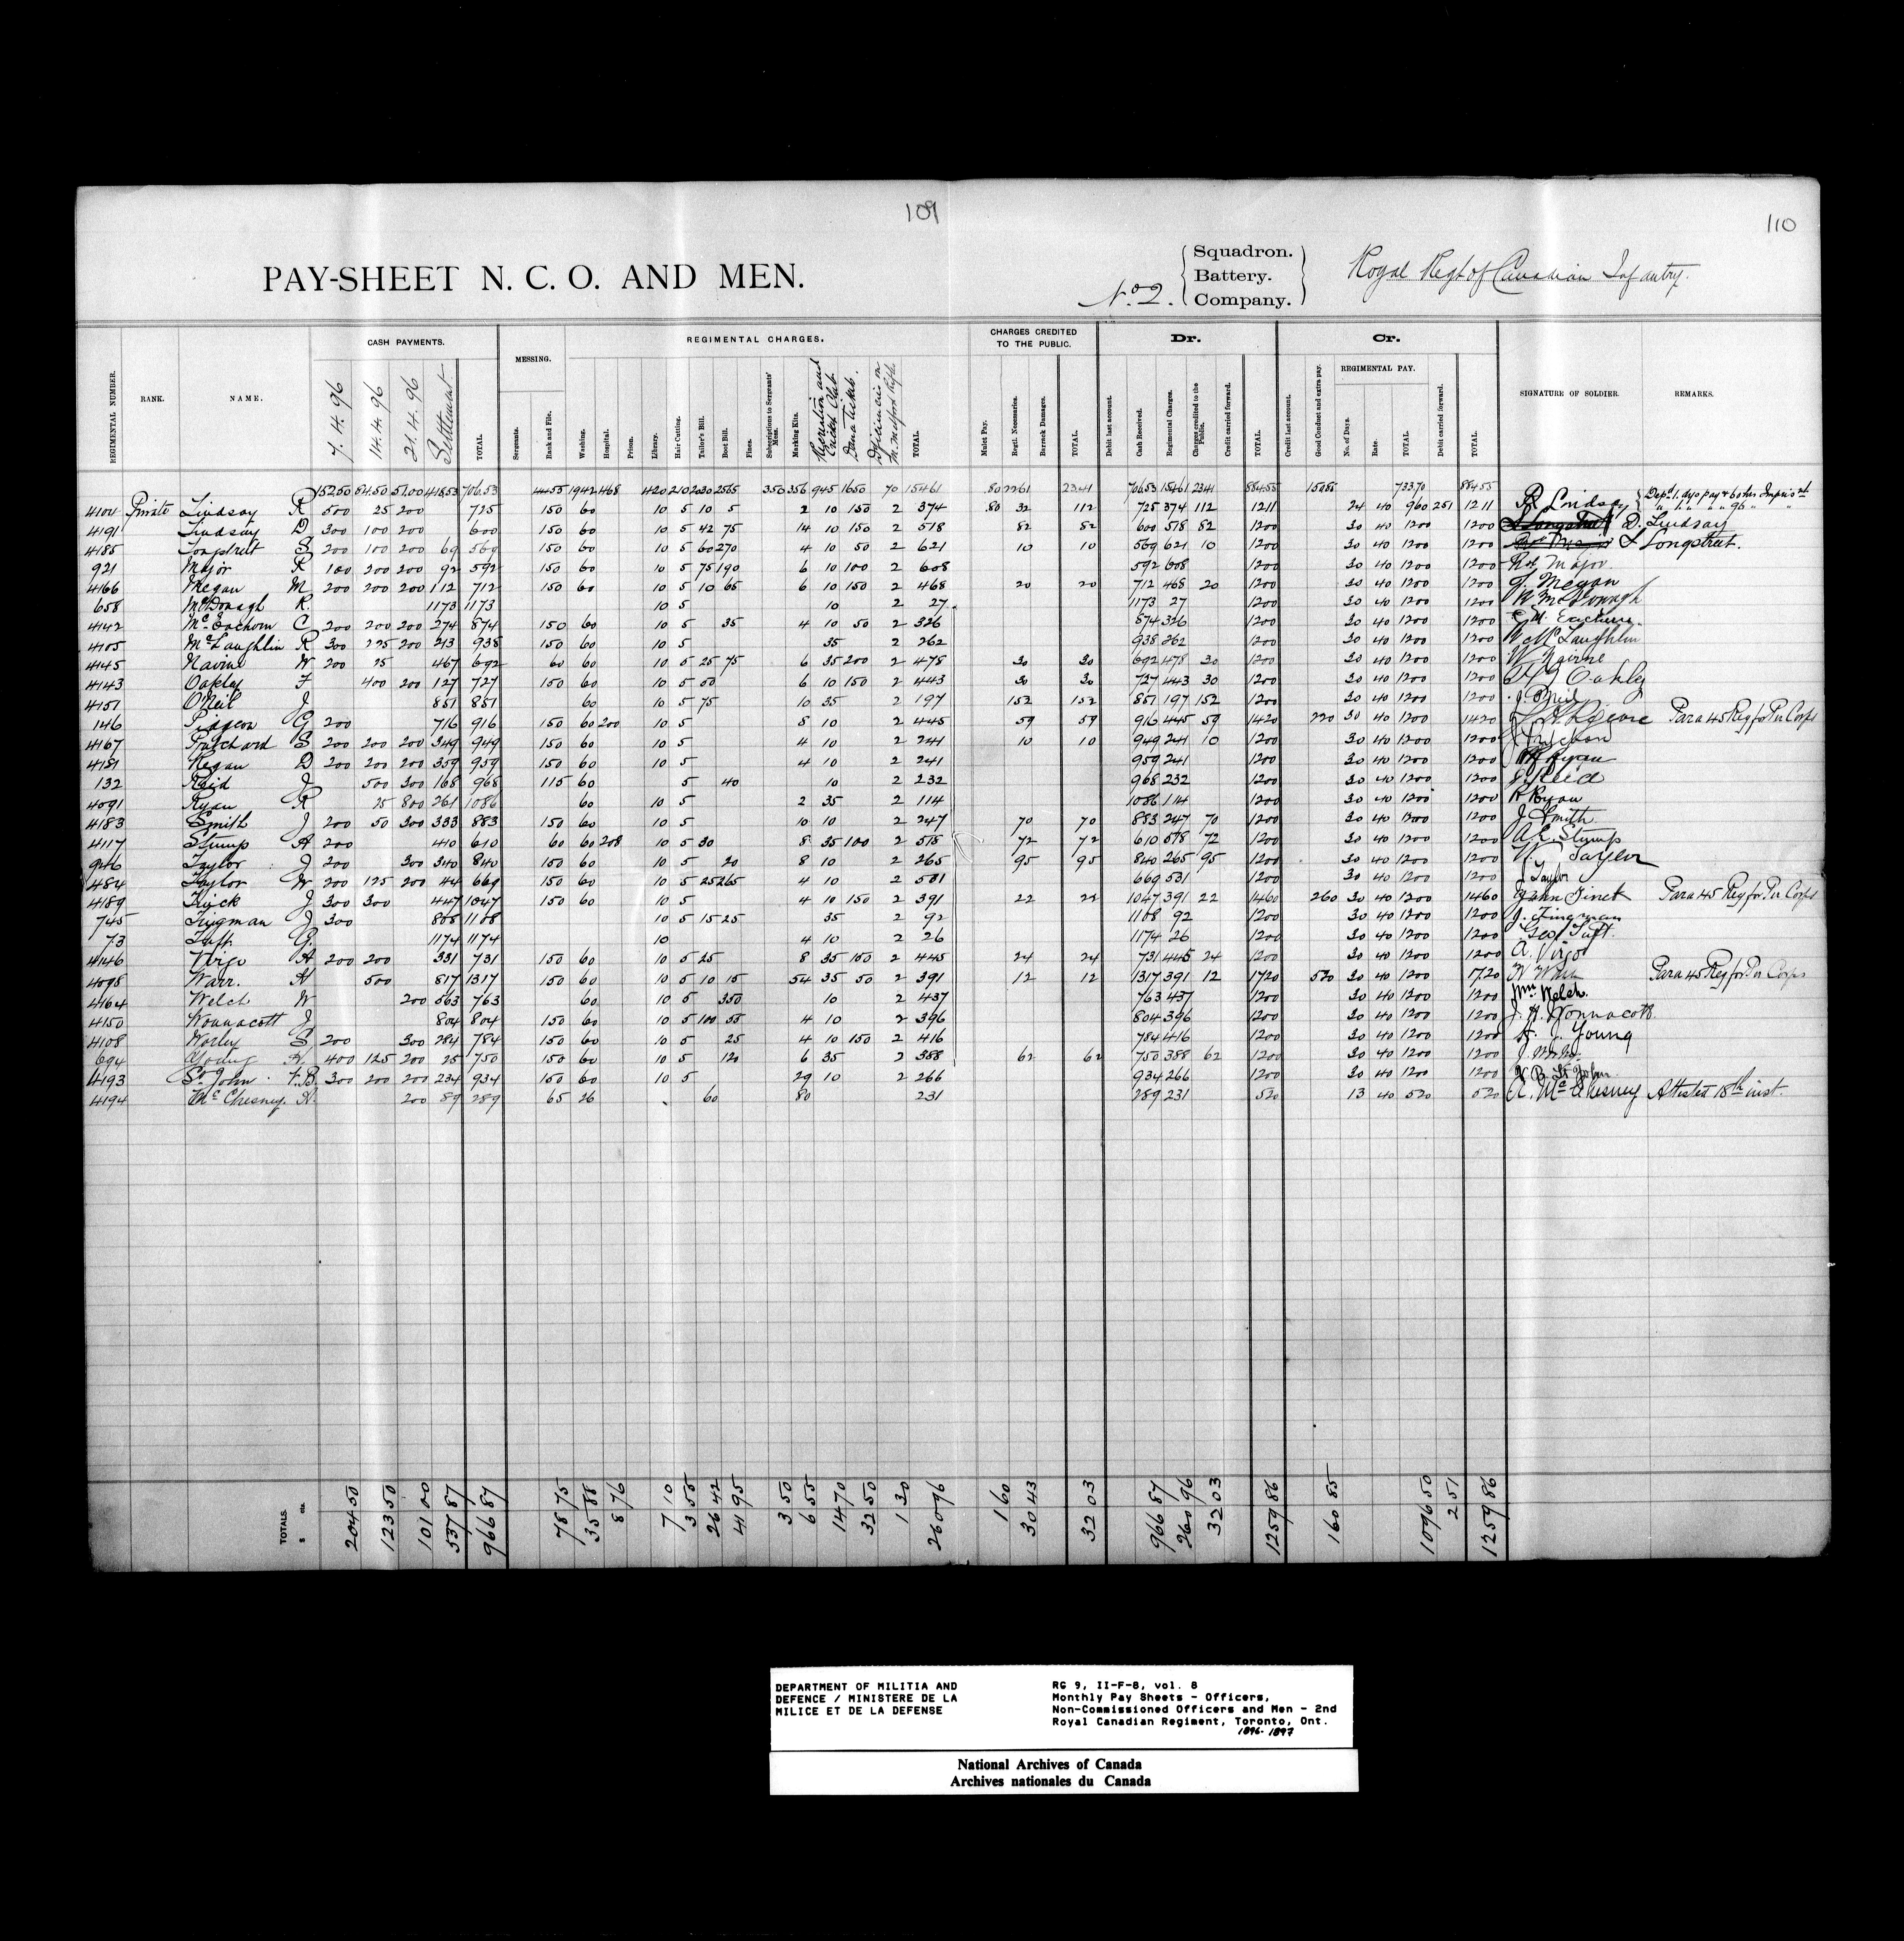 109
110
PAY-SHEET N. C. O. AND MEN.
No. 2. Squadron. Battery. Company.
Royal Regt of Canadian Infantry.
REGIMENTAL NUMBER. RANK. NAME. CASH PAYMENTS. 7.4.96 14.4.96 21.4.96 Settlement TOTAL
MESSING. Sergeants. Rank and File.
REGIMENTAL CHARGES. Washing. Hospital. Prison. Library. Hair Cutting. Tailor's Bill. Boot Bill. Fines. Subscriptions to Sergeants' Mess. Marking Kits. Recreation and Cricket Club Dena tickets. Deficiencies on M. Metford Rifle TOTAL
CHARGES CREDITED TO THE PUBLIC. Mulct Pay. Regtl. Necessaries. Barrack Damages. TOTAL
Dr. Debit last account. Cash Received. Regimental Charges. Charges credited to the Public. Credit carried forward. TOTAL
Cr. Credit last account. Good Conduct and extra pay. REGIMENTAL PAY. No. of Days. Rate. TOTAL Debit carried forward. TOTAL
SIGNATURE OF SOLDIER. REMARKS.
152.50 84.50 51.00 418.53 706.53 44.55 19.42 4.68 4.20 2.10 20.30 25.65 3.50 3.56 9.45 16.50 70 154.61 .80 22.61 23.41 706.53 154.61 23.41 884.55 150.85 733.70 884.55
4104 Private Lindsay R 500 25 200 725 150 60 10 5 10 5 2 10 150 2 374 .80 32 112 725 374 112 1211 24 40 960 251 1211 R Lindsay Depd. 1 dys pay & 6 dys Impris'nt
4191 Lindsay D 300 100 200 600 150 60 10 5 42 75 14 10 150 2 518 82 82 600 518 82 1200 30 40 1200 1200 D. Lindsay
4185 Longstreet S 200 100 200 69 569 150 60 10 5 60 270 4 10 50 2 621 10 10 569 621 10 1200 30 40 1200 1200 S Longstreet.
921 Major R 100 200 200 92 592 150 60 10 5 75 190 6 10 100 2 608 592 608 1200 30 40 1200 1200 Rot Major
4166 Megan M 200 200 200 112 712 150 60 10 5 10 65 6 10 150 2 468 20 20 712 468 20 1200 30 40 1200 1200 Megan
658 McDonagh R. 1173 1173 10 5 10 2 27 1173 27 1200 30 40 1200 1200 R McDonagh
4142 McEachern C 200 200 200 274 874 150 60 10 5 35 4 10 50 2 326 874 326 1200 30 40 1200 1200
4105 McLaughlin R 300 225 200 213 938 150 60 10 5 35 2 262 938 262 1200 30 40 1200 1200 McLaughlin
4145 Navin W 200 25 467 692 60 60 10 5 25 75 6 35 200 2 478 30 30 692 478 30 1200 30 40 1200 1200 W Nairne
4143 Oakley F 400 200 127 727 150 60 10 5 50 6 10 150 2 443 30 30 727 443 30 1200 30 40 1200 1200 Oakley
4151 O'Neil J 851 851 60 10 5 75 10 35 2 197 152 152 851 197 152 1200 30 40 1200 1200 J. O'Neil
146 Pidgeon G 200 716 916 150 60 200 10 5 8 10 2 445 59 59 916 445 59 1420 220 30 40 1200 1420 Para 45 Reg for Per Corps
4167 Pritchard S 200 200 200 349 949 150 60 10 5 4 10 2 241 10 10 949 241 10 1200 30 40 1200 1200
4181 Regan D 200 200 200 359 959 150 60 10 5 4 10 2 241 959 241 1200 30 40 1200 1200
132 Reid J 500 300 168 968 115 60 5 40 10 2 232 968 232 1200 30 40 1200 1200 J Reid
4091 Ryan R 25 800 261 1086 60 10 5 2 35 2 114 1086 114 1200 30 40 1200 1200 R Ryan
4183 Smith J 200 50 300 333 883 150 60 10 5 10 10 2 247 70 70 883 247 70 1200 30 40 1200 1200 J Smith
4117 Stump A 200 410 610 60 60 208 10 5 30 8 35 100 2 518 72 72 610 518 72 1200 30 40 1200 1200 A E Stump
946 Taylor J 200 300 340 840 150 60 10 5 20 8 10 2 265 95 95 840 265 95 1200 30 40 1200 1200 W. Taylor
484 Taylor W 200 125 200 44 669 150 60 10 5 25 265 4 10 2 531 669 531 1200 30 40 1200 1200 J Taylor
4189 Tinck J 300 300 447 1047 150 60 10 5 4 10 150 2 391 22 22 1047 391 22 1460 260 30 40 1200 1460 John Tinck Para 45 Reg for Per Corps
745 Tingman J 300 808 1108 10 5 15 25 35 2 92 1108 92 1200 30 40 1200 1200 J. Tingman
73 Tuft G. 1174 1174 10 4 10 2 26 1174 26 1200 30 40 1200 1200 Geo Tuft.
4146 Virgo A 200 200 331 731 150 60 10 5 25 8 35 150 2 445 24 24 731 445 24 1200 30 40 1200 1200 A. Virgo
4098 Warr. H 500 817 1317 150 60 10 5 10 15 54 35 50 2 391 12 12 1317 391 12 1720 520 30 40 1200 1720 Para 45 Reg for Per Corps
4164 Welch W 200 563 763 60 10 5 350 10 2 437 763 437 1200 30 40 1200 1200 Wm Welch.
4150 Wonnacott J 804 804 150 60 10 5 100 55 4 10 2 396 804 396 1200 30 40 1200 1200 J. H. Wonnacott.
4108 Worley S 200 300 284 784 150 60 10 5 25 4 10 150 2 416 784 416 1200 30 40 1200 1200 Young
694 Young A 400 125 200 25 750 150 60 10 5 120 6 35 2 388 62 62 750 388 62 1200 30 40 1200 1200
4193 St. John F.B. 300 200 200 234 934 150 60 10 5 29 10 2 266 934 266 1200 30 40 1200 1200 F B St John
4194 McChesney. A. 200 89 289 65 26 60 80 231 289 231 520 13 40 520 520 A. McChesney Attested 18th inst.
TOTALS. $ cts. 204 50 123 50 101 00 537 87 966 87 78 75 35 88 8 76 7 10 3 55 26 42 41 95 3 50 6 55 14 70 32 50 1 30 260 96 1 60 30 43 32 03 966 87 260 96 32 03 1259 86 160 85 1096 50 2 51 1259 86
DEPARTMENT OF MILITIA AND
DEFENCE / MINISTERE DE LA
MILICE ET DE LA DEFENSE
RG 9, II-F-8, vol. 8
Monthly Pay Sheets - Officers,
Non-Commissioned Officers and Men - 2nd
Royal Canadian Regiment, Toronto, Ont.
1896-1897
National Archives of Canada
Archives nationales du Canada